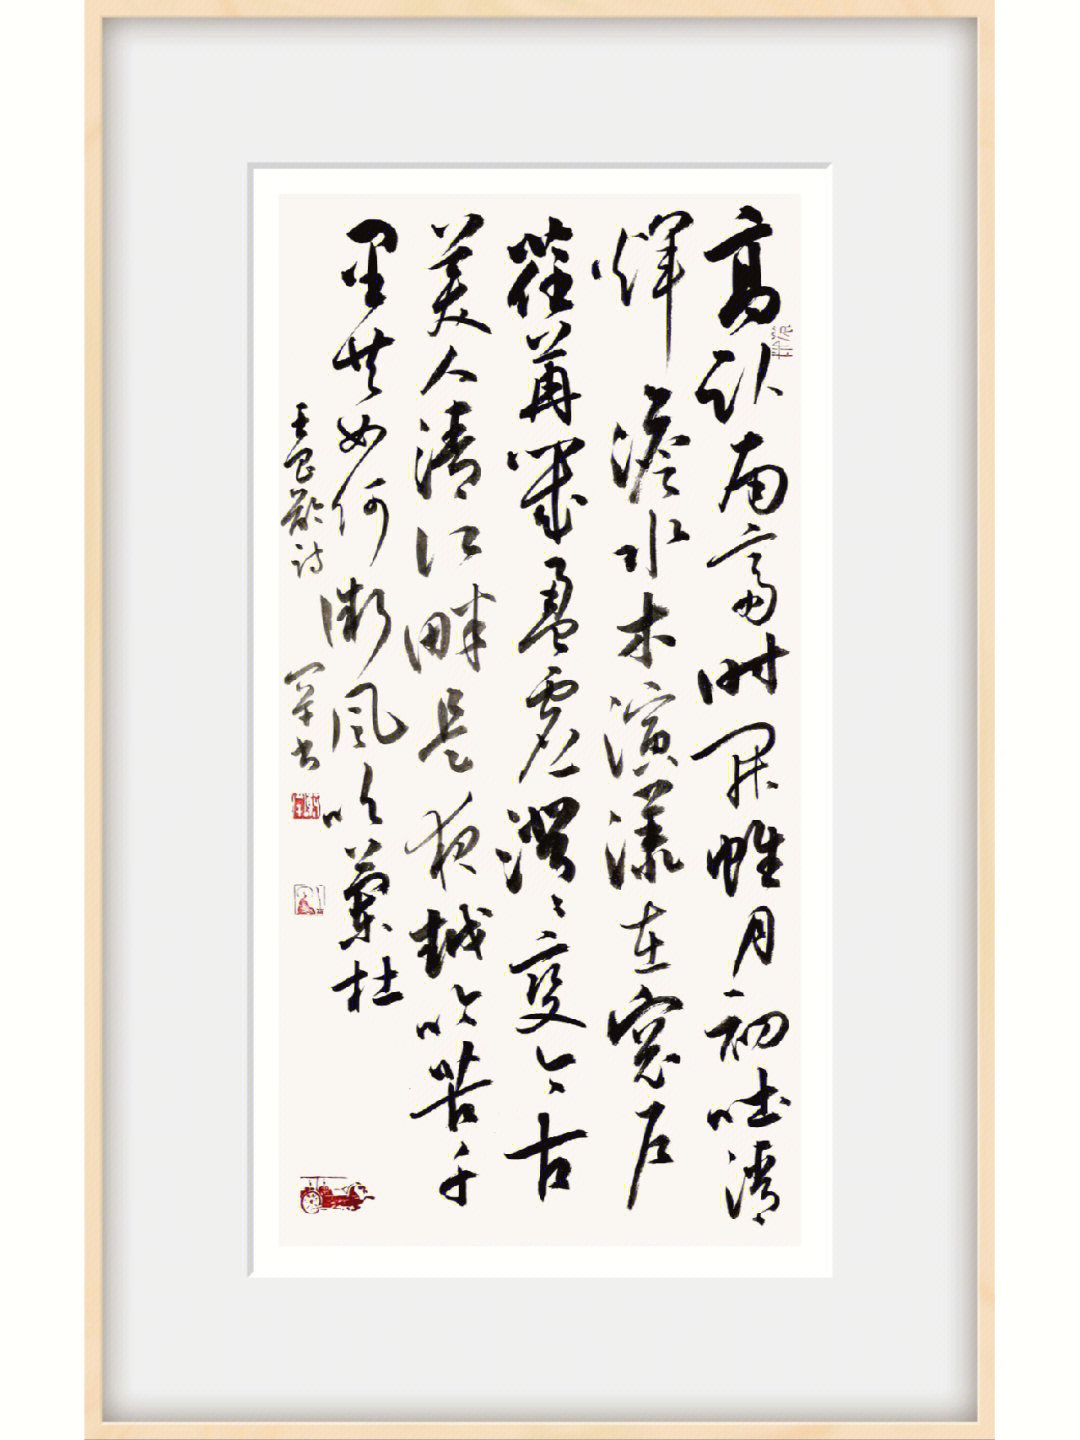 高卧南斋时开帷月初吐清
煇澹水木演漾在窓户
荏苒幾盈虚澄〻變今古
美人清江畔是夜越吟苦千
里共如何微風吹蘭杜
王昌龄诗 军书